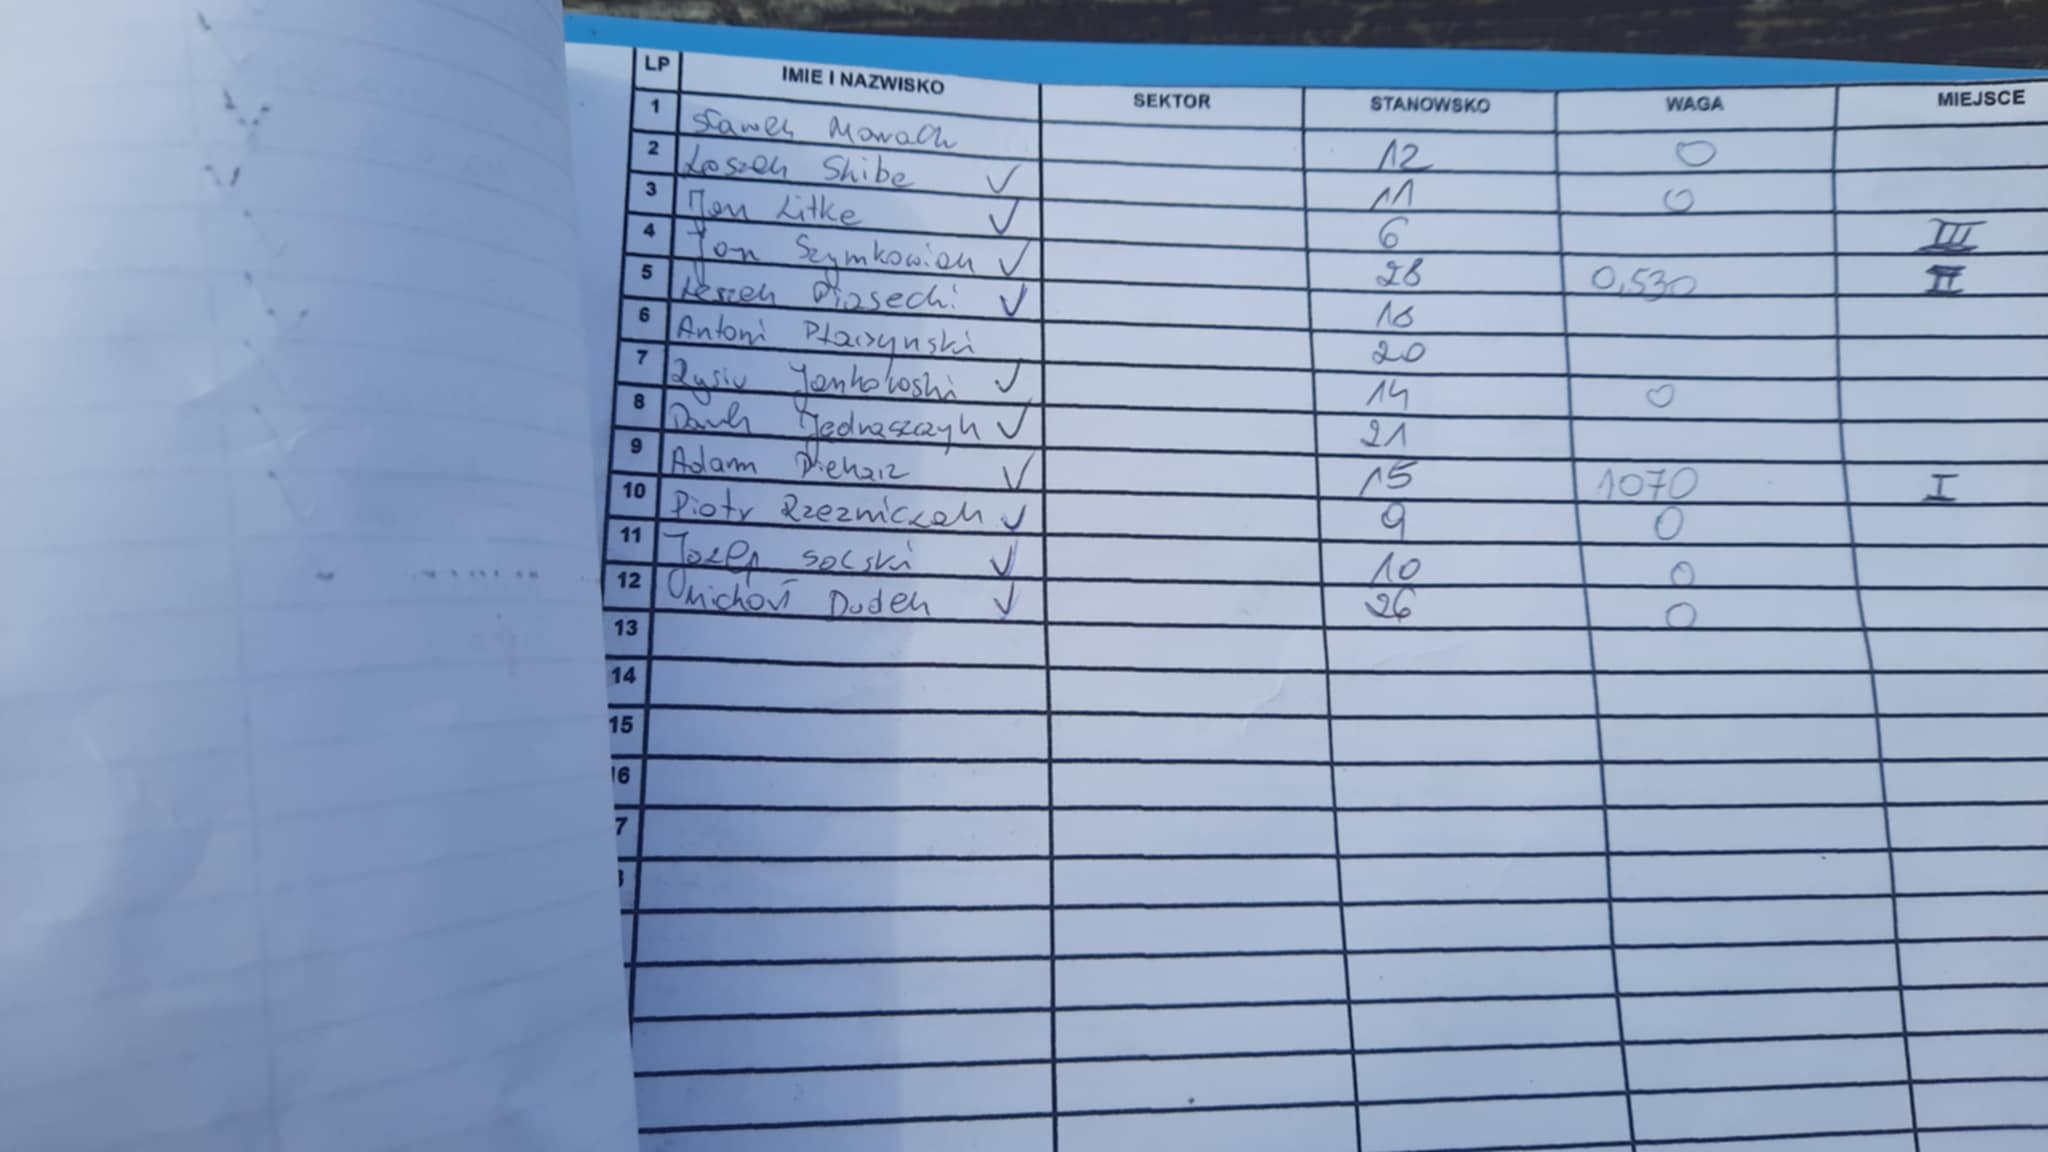 LP IMIE I NAZWISKO SEKTOR STANOWSKO WAGA MIEJSCE
1 Sławek Nowach 12 0
2 Leszek Skibe ✓ 11 0
3 Jan Litke ✓ 6 III
4 Jan Szymkowiak ✓ 28 0,530 II
5 Leszek Piasecki ✓ 18
6 Antoni 20
7 Rysiu ✓ 14 0
8 Jędraszczyk ✓ 21
9 Adam Piekarz ✓ 15 1070 I
10 Piotr Rzezniczak ✓ 9 0
11 Józef Solski ✓ 10 0
12 Michał Dudek ✓ 26 0
13
14
15
16
7